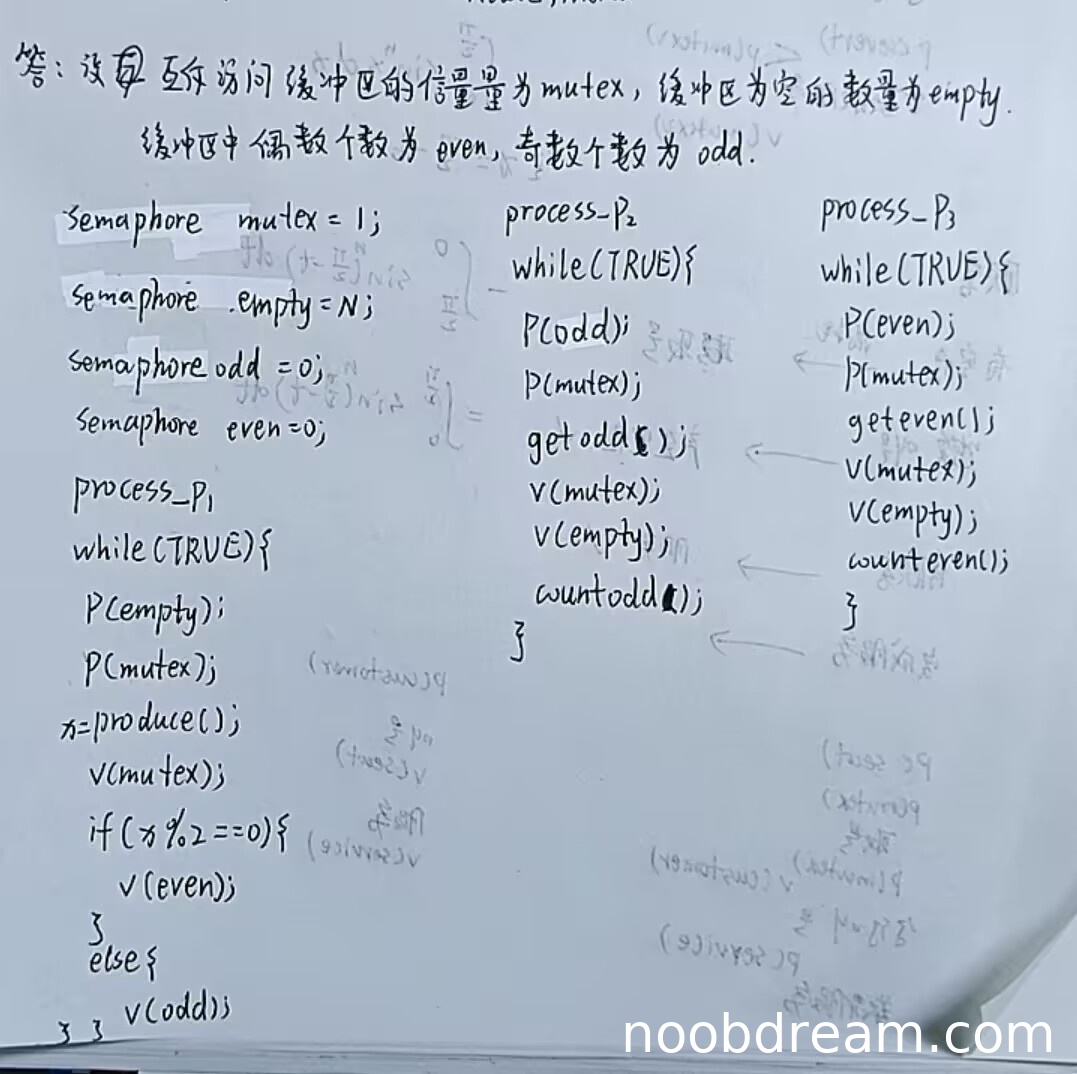 答：设 互斥访问缓冲区的信量量为mutex，缓冲区为空的数量为empty.
缓冲区中偶数个数为even，奇数个数为odd.
semaphore mutex=1;
semaphore empty=N;
semaphore odd=0;
semaphore even=0;
process_P1
while(TRUE){
P(empty);
P(mutex);
x=produce();
V(mutex);
if(x%2==0){
V(even);
}
else{
V(odd);
} }
process_P2
while(TRUE){
P(odd);
P(mutex);
getodd();
V(mutex);
V(empty);
countodd();
}
process_P3
while(TRUE){
P(even);
P(mutex);
geteven();
V(mutex);
V(empty);
counteven();
}
noobdream.com